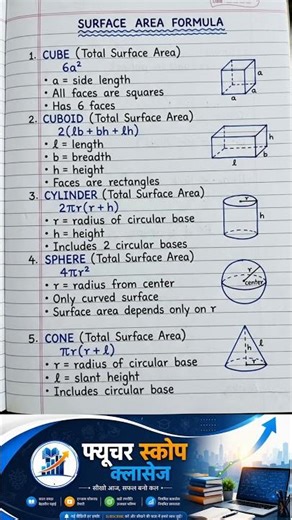 SURFACE AREA FORMULA
1. CUBE (Total Surface Area)
6a²
• a = side length
• All faces are squares
• Has 6 faces
a
a
a
2. CUBOID (Total Surface Area)
2(lb + bh + lh)
• l = length
• b = breadth
• h = height
• Faces are rectangles
h
b
l
3. CYLINDER (Total Surface Area)
2πr(r + h)
• r = radius of circular base
• h = height
• Includes 2 circular bases
r
h
4. SPHERE (Total Surface Area)
4πr²
• r = radius from center
• Only curved surface
• Surface area depends only on r
r
center
5. CONE (Total Surface Area)
πr(r + l)
• r = radius of circular base
• l = slant height
• Includes circular base
h
l
r
फ्यूचर स्कोप
क्लासेज
सीखो आज, सफल बनो कल